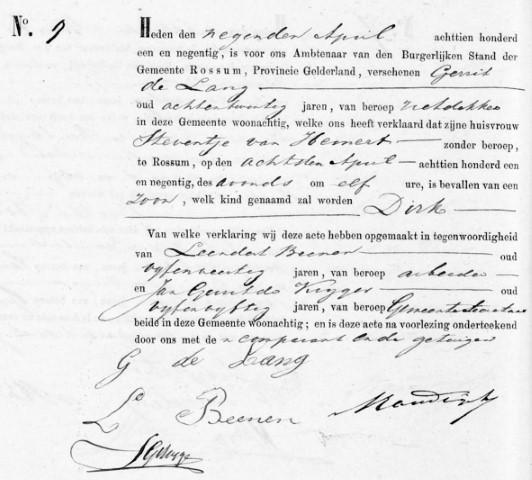 No. 9
Heden den negenden April achttien honderd
een en negentig, is voor ons Ambtenaar van den Burgerlijken Stand der
Gemeente Rossum, Provincie Gelderland, verschenen Gerrit
de Lang
oud achtentwintig jaren, van beroep rietdekker
in deze Gemeente woonachtig, welke ons heeft verklaard dat zijne huisvrouw
Steventje van Hemert zonder beroep,
te Rossum, op den achtsten April achttienhonderd een
en negentig, des avonds om elf ure, is bevallen van een
zoon, welk kind genaamd zal worden Dirk
Van welke verklaring wij deze acte hebben opgemaakt in tegenwoordigheid
van Leendert Beenen oud
jaren, van beroep arbeider
en Jan de oud
vijfenvijftig jaren, van beroep Gemeentesecretaris
beide in deze Gemeente woonachtig; en is deze acte na voorlezing onderteekend
door ons met de comparant en de getuigen
G de Lang
L Beenen